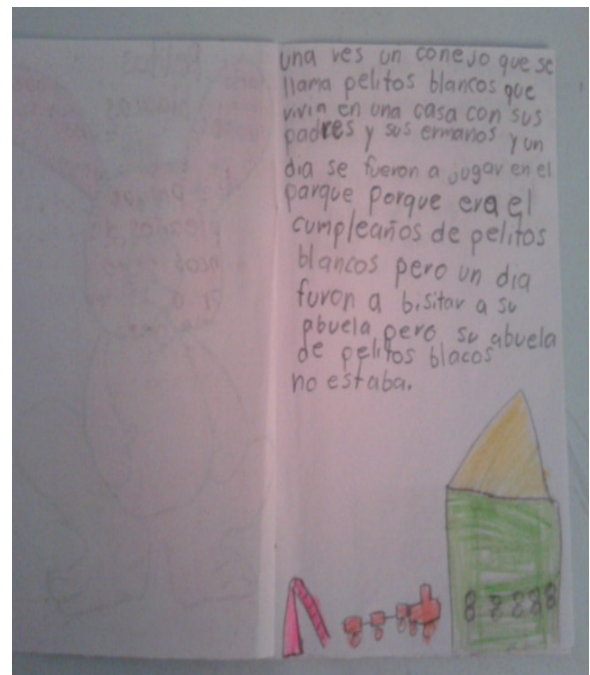 una ves un conejo que se
llama pelitos blancos que
vivia en una casa con sus
padres y sus ermanos y un
dia se fueron a jugar en el
parque porque era el
cumpleaños de pelitos
blancos pero un dia
furon a bisitar a su
abuela pero su abuela
de pelitos blacos
no estaba.
88888